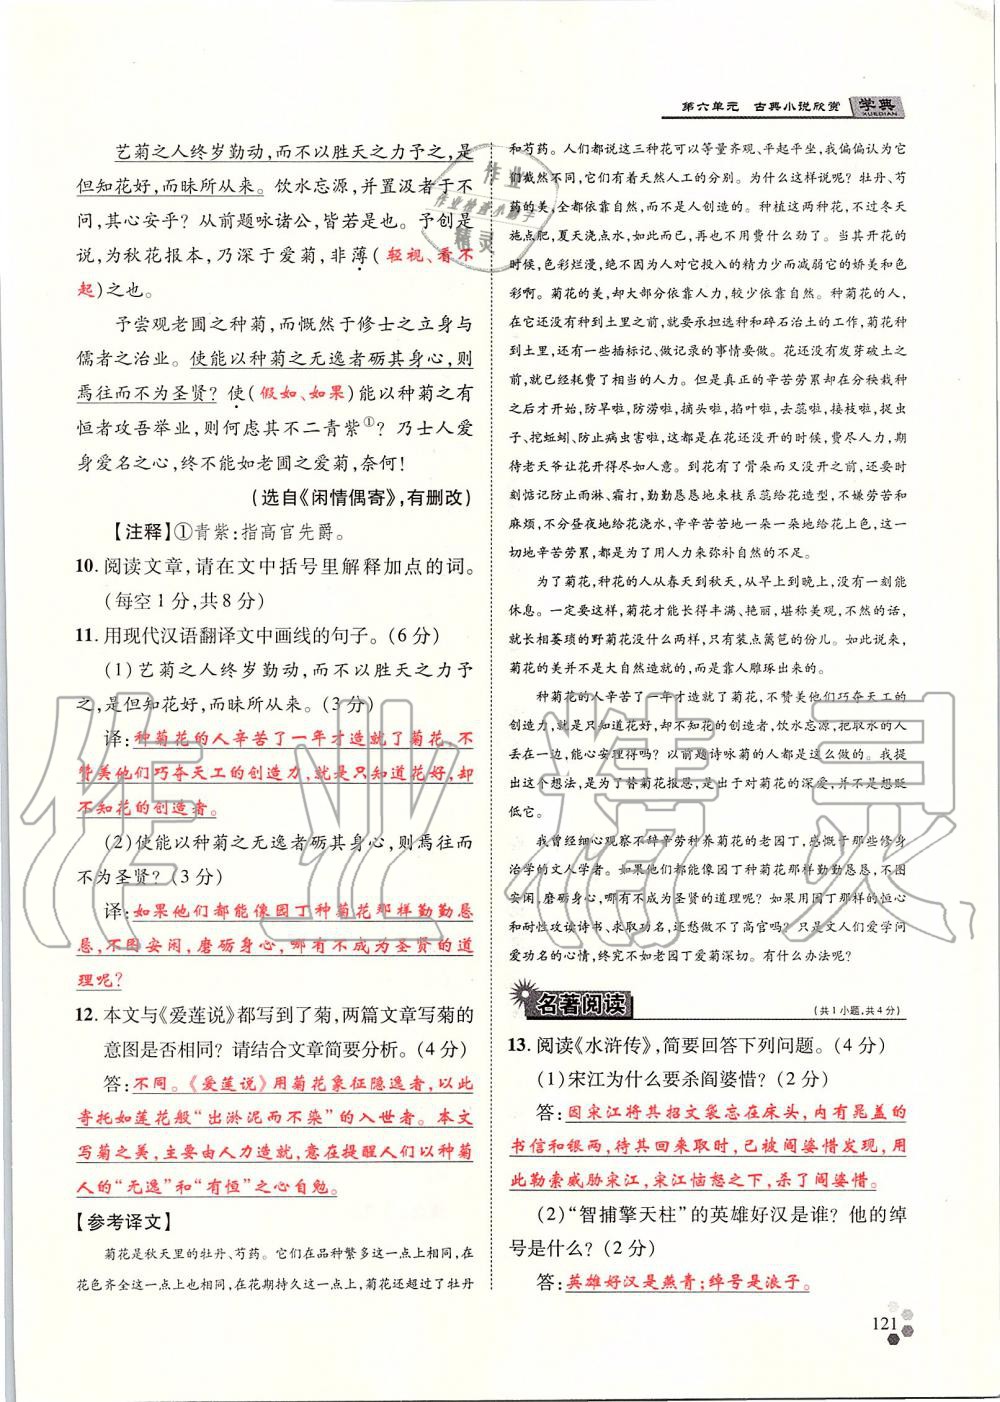 第六单元 古典小说欣赏 学典
XUEDIAN
艺菊之人终岁勤动,而不以胜天之力予之,是
但知花好,而昧所从来。饮水忘源,并置汲者于不
问,其心安乎?从前题咏诸公,皆若是也。予创是
说,为秋花报本,乃深于爱菊,非薄(轻视、看不
起)之也。
予尝观老圃之种菊,而慨然于修士之立身与
儒者之治业。使能以种菊之无逸者砺其身心,则
焉往而不为圣贤?使(假如、如果)能以种菊之有
恒者攻吾举业,则何虑其不二青紫①?乃士人爱
身爱名之心,终不能如老圃之爱菊,奈何!
(选自《闲情偶寄》,有删改)
【注释】①青紫:指高官先爵。
10.阅读文章,请在文中括号里解释加点的词。
(每空1分,共8分)
11.用现代汉语翻译文中画线的句子。(6分)
(1)艺菊之人终岁勤动,而不以胜天之力予
之,是但知花好,而昧所从来。(3分)
译:种菊花的人辛苦了一年才造就了菊花,不
赞美他们巧夺天工的创造力,就是只知道花好,却
不知花的创造者。
(2)使能以种菊之无逸者砺其身心,则焉往而
不为圣贤?(3分)
译:如果他们都能像园丁种菊花那样勤勤恳
恳,不图安闲,磨砺身心,哪有不成为圣贤的道
理呢?
12.本文与《爱莲说》都写到了菊,两篇文章写菊的
意图是否相同?请结合文章简要分析。(4分)
答:不同。《爱莲说》用菊花象征隐逸者,以此
寄托如莲花般“出淤泥而不染”的入世者。本文
写菊之美,主要由人力造就,意在提醒人们以种菊
人的“无逸”和“有恒”之心自勉。
【参考译文】
菊花是秋天里的牡丹、芍药。它们在品种繁多这一点上相同,在
花色齐全这一点上也相同,在花期持久这一点上,菊花还超过了牡丹
和芍药。人们都说这三种花可以等量齐观、平起平坐,我偏偏认为它
们截然不同,它们有着天然人工的分别。为什么这样说呢?牡丹、芍
药的美,全都依靠自然,而不是人创造的。种植这两种花,不过冬天
施点肥,夏天浇点水,如此而已,再也不用费什么劲了。当其开花的
时候,色彩烂漫,绝不因为人对它投入的精力少而减弱它的娇美和色
彩啊。菊花的美,却大部分依靠人力,较少依靠自然。种菊花的人,
在它还没有种到土里之前,就要承担选种和碎石治土的工作,菊花种
到土里之前,还有一些插标记、做记录的事情要做。花还没有发芽破土之
前,就已经耗费了相当的人力。但是真正的辛苦劳累却在分秧栽种
之后才开始,防旱啦,防涝啦,摘头啦,掐叶啦,去蕊啦,接枝啦,捉虫
子、挖蚯蚓、防止病虫害啦,这都是在花还没开的时候,费尽人力,期
待老天爷让花开得尽如人意。到花有了骨朵而又没开的时候,还要时
刻惦记防止雨淋、霜打,勤勤恳恳地束枝系蕊给花造型,不嫌劳苦和
麻烦,不分昼夜地给花浇水,辛辛苦苦地一朵一朵地给花上色,这一
切地辛苦劳累,都是为了用人力来弥补自然的不足。
为了菊花,种花的人从春天到秋天,从早上到晚上,没有一刻能
休息。一定要这样,菊花才能长得丰满、艳丽,堪称美观,不然的话,
就长相萎琐的野菊花没什么两样,只有装点篱笆的份儿。如此说来,
菊花的美并不是大自然造就的,而是靠人雕琢出来的。
种菊花的人辛苦了一年才造就了菊花,不赞美他们巧夺天工的
创造力,就是只知道花好,却不知花的创造者,饮水忘源,把取水的人
丢在一边,能心安理得吗?以前题诗咏菊的人都是这么做的。我提
出这个想法,是为了替菊花报恩,是出于对菊花的深爱,并不是想贬
低它。
我曾经细心观察不辞辛劳种养菊花的老园丁,感慨于那些修身
治学的文人学者。如果他们都能像园丁种菊花那样勤勤恳恳,不图
安闲、磨砺身心,哪有不成为圣贤的道理呢?如果用园丁那样的恒心
和耐性攻读诗书、求取功名,还愁做不了高官吗?只是文人们爱学问
爱功名的心情,终究不如老园丁爱菊深切。有什么办法呢?
名著阅读 (共1小题,共4分)
13.阅读《水浒传》,简要回答下列问题。(4分)
(1)宋江为什么要杀阎婆惜?(2分)
答:因宋江将其招文袋忘在床头,内有晁盖的
书信和银两,待其回来取时,已被阎婆惜发现,用
此勒索威胁宋江,宋江恼怒之下,杀了阎婆惜。
(2)“智捕擎天柱”的英雄好汉是谁?他的绰
号是什么?(2分)
答:英雄好汉是燕青;绰号是浪子。
121
作业
作业检查小帮手
精灵
作业精灵